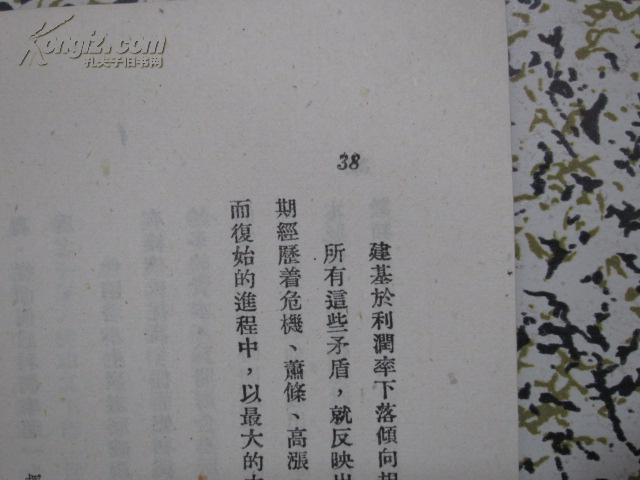 Kongfz.com
孔夫子旧书网
38
建基於利潤率下落傾向
所有這些矛盾，就反映出
期經歷着危機、蕭條、高漲
而復始的進程中，以最大的